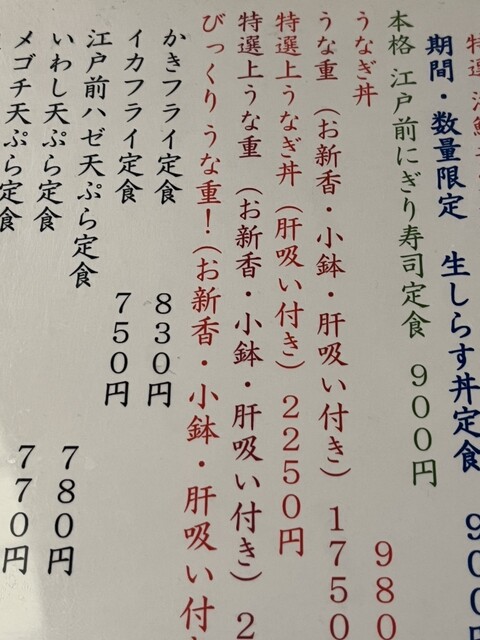 特選 海鮮
期間・数量限定 生しらす丼定食 900円
本格 江戸前にぎり寿司定食 900円
うなぎ丼 980
うな重 (お新香・小鉢・肝吸い付き) 1750
特選上うなぎ丼 (肝吸い付き) 2250円
特選上うな重 (お新香・小鉢・肝吸い付き) 2
びっくりうな重!(お新香・小鉢・肝吸い付
かきフライ定食 830円
イカフライ定食 750円
江戸前ハゼ天ぷら定食 780円
いわし天ぷら定食 770円
メゴチ天ぷら定食